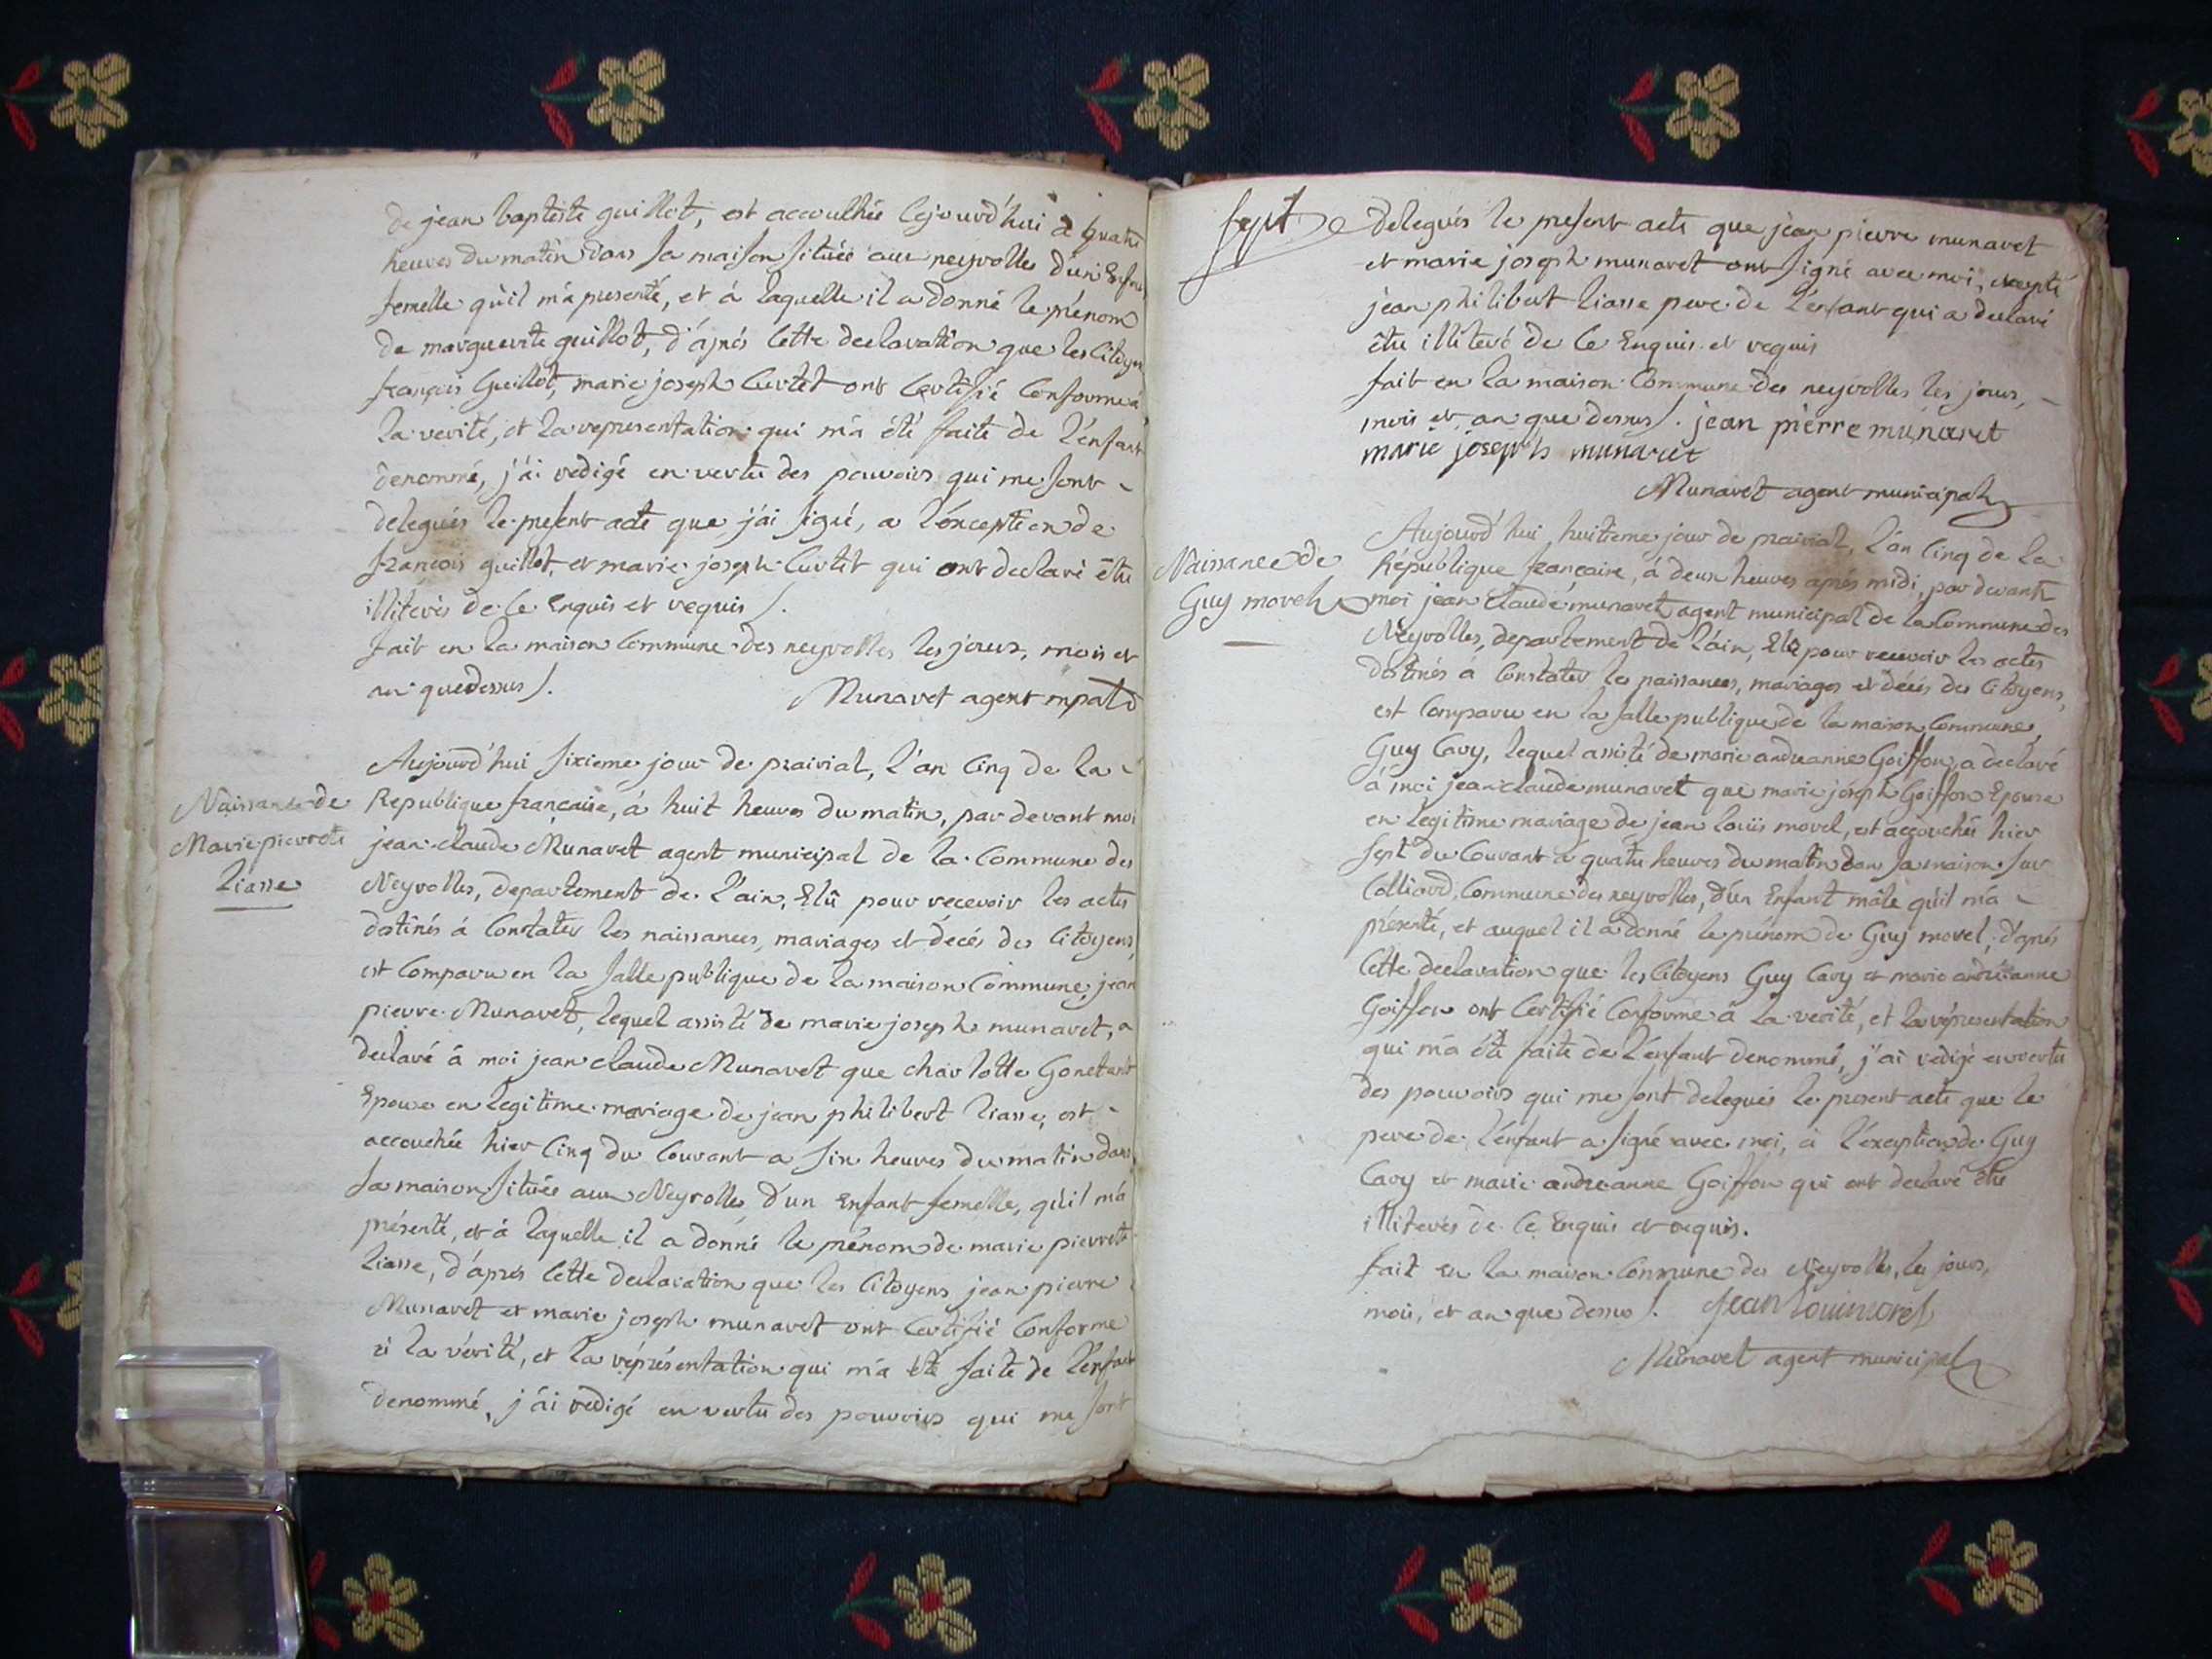 de jean baptiste guillot, est accouchée cejourd'hui à quatre
heures du matin dans sa maison située aux neyrolles d'un Enfant
femelle qu'il m'a presenté, et à laquelle il a donné le prénom
de marguerite guillot, d'après cette declaration que les Citoyens
françois Guillot, marie joseph Curtet ont Certifié Conforme à
la verité, et la representation qui m'a été faite de l'enfant
denommé, j'ai redigé en vertu des pouvoirs qui me sont
delegués le present acte que j'ai signé, a l'éxception de
françois guillot, et marie joseph Curtet qui ont declaré être
illiterés de ce Enquis et requis /.
fait en la maison Commune des neyrolles les jour, mois et
an que dessus /.
Munaret agent mpal
Naissance de
Marie pierrette
Liasse
Aujourd'hui sixieme jour de prairial, l'an Cinq de la
Republique française, à huit heures du matin, par devant moi
jean claude Munaret agent municipal de la Commune des
Neyrolles, departement de l'ain, Elû pour recevoir les actes
destinés à Constater les naissances, mariages et décés des Citoyens,
est Comparu en la salle publique de la maison Commune, jean
pierre Munaret, lequel assisté de marie joseph munaret, a
declaré à moi jean claude Munaret que charlotte Gonetant
Epouse en legitime mariage de jean philibert liasse, est
accouchée hier Cinq du Courant a six heures du matin dans
sa maison située aux Neyrolles d'un Enfant femelle, qu'il m'a
présenté, et à laquelle il a donné le prénom de marie pierrette
liasse, d'áprés Cette declaration que les Citoyens jean pierre
Munaret et marie joseph munaret ont Certifié Conforme
à la vérité, et la réprésentation qui m'a été faite de l'enfant
denommé, j'ái redigé en vertu des pouvoirs qui me sont
sept
delegués le present acte que jean pierre munaret
et marie joseph munaret ont signé avec moi, excepté
jean philibert liasse pere de l'enfant qui a declaré
être illiteré de Ce Enquis et requis
fait en la maison Commune des neyrolles les jour,
mois et an que dessus /. jean pierre munaret
marie joseph munaret
Munaret agent municipal
Naissance de
Guy morel
Aujourd'hui huitieme jour de prairial, l'an Cinq de la
République française, à deux heures après midi, par devant
moi jean Claude munaret agent municipal de la Commune des
Neyrolles, departement de l'ain, Elû pour recevoir les actes
destinés à Constater les naissances, mariages et décés des Citoyens,
est Comparu en la salle publique de la maison Commune,
Guy Cavy, lequel assisté de marie andreanne Goiffon, a declaré
à moi jean claude munaret que marie joseph Goiffon Epouse
en legitime mariage de jean louis morel, est accouchée hier
sept du Courant à quatre heures du matin dans sa maison sur
Colliard, Commune des neyrolles, d'un Enfant mâle qu'il m'a
présenté, et auquel il a donné le prénom de Guy morel, d'aprés
Cette declaration que les Citoyens Guy Cavy et marie andréanne
Goiffon ont Certifié Conforme à la verité, et la réprésentation
qui m'a été faite de l'enfant denommé, j'ai redigé en vertu
des pouvoirs qui me sont delegués le present acte que le
pere de l'enfant a signé avec moi, à l'exception de Guy
Cavy et marie andreanne Goiffon qui ont declaré être
illiterés de Ce Enquis et requis.
fait en la maison Commune des Neyrolles, les jour,
mois, et an que dessus /. Jean Louis morel
Munaret agent municipal